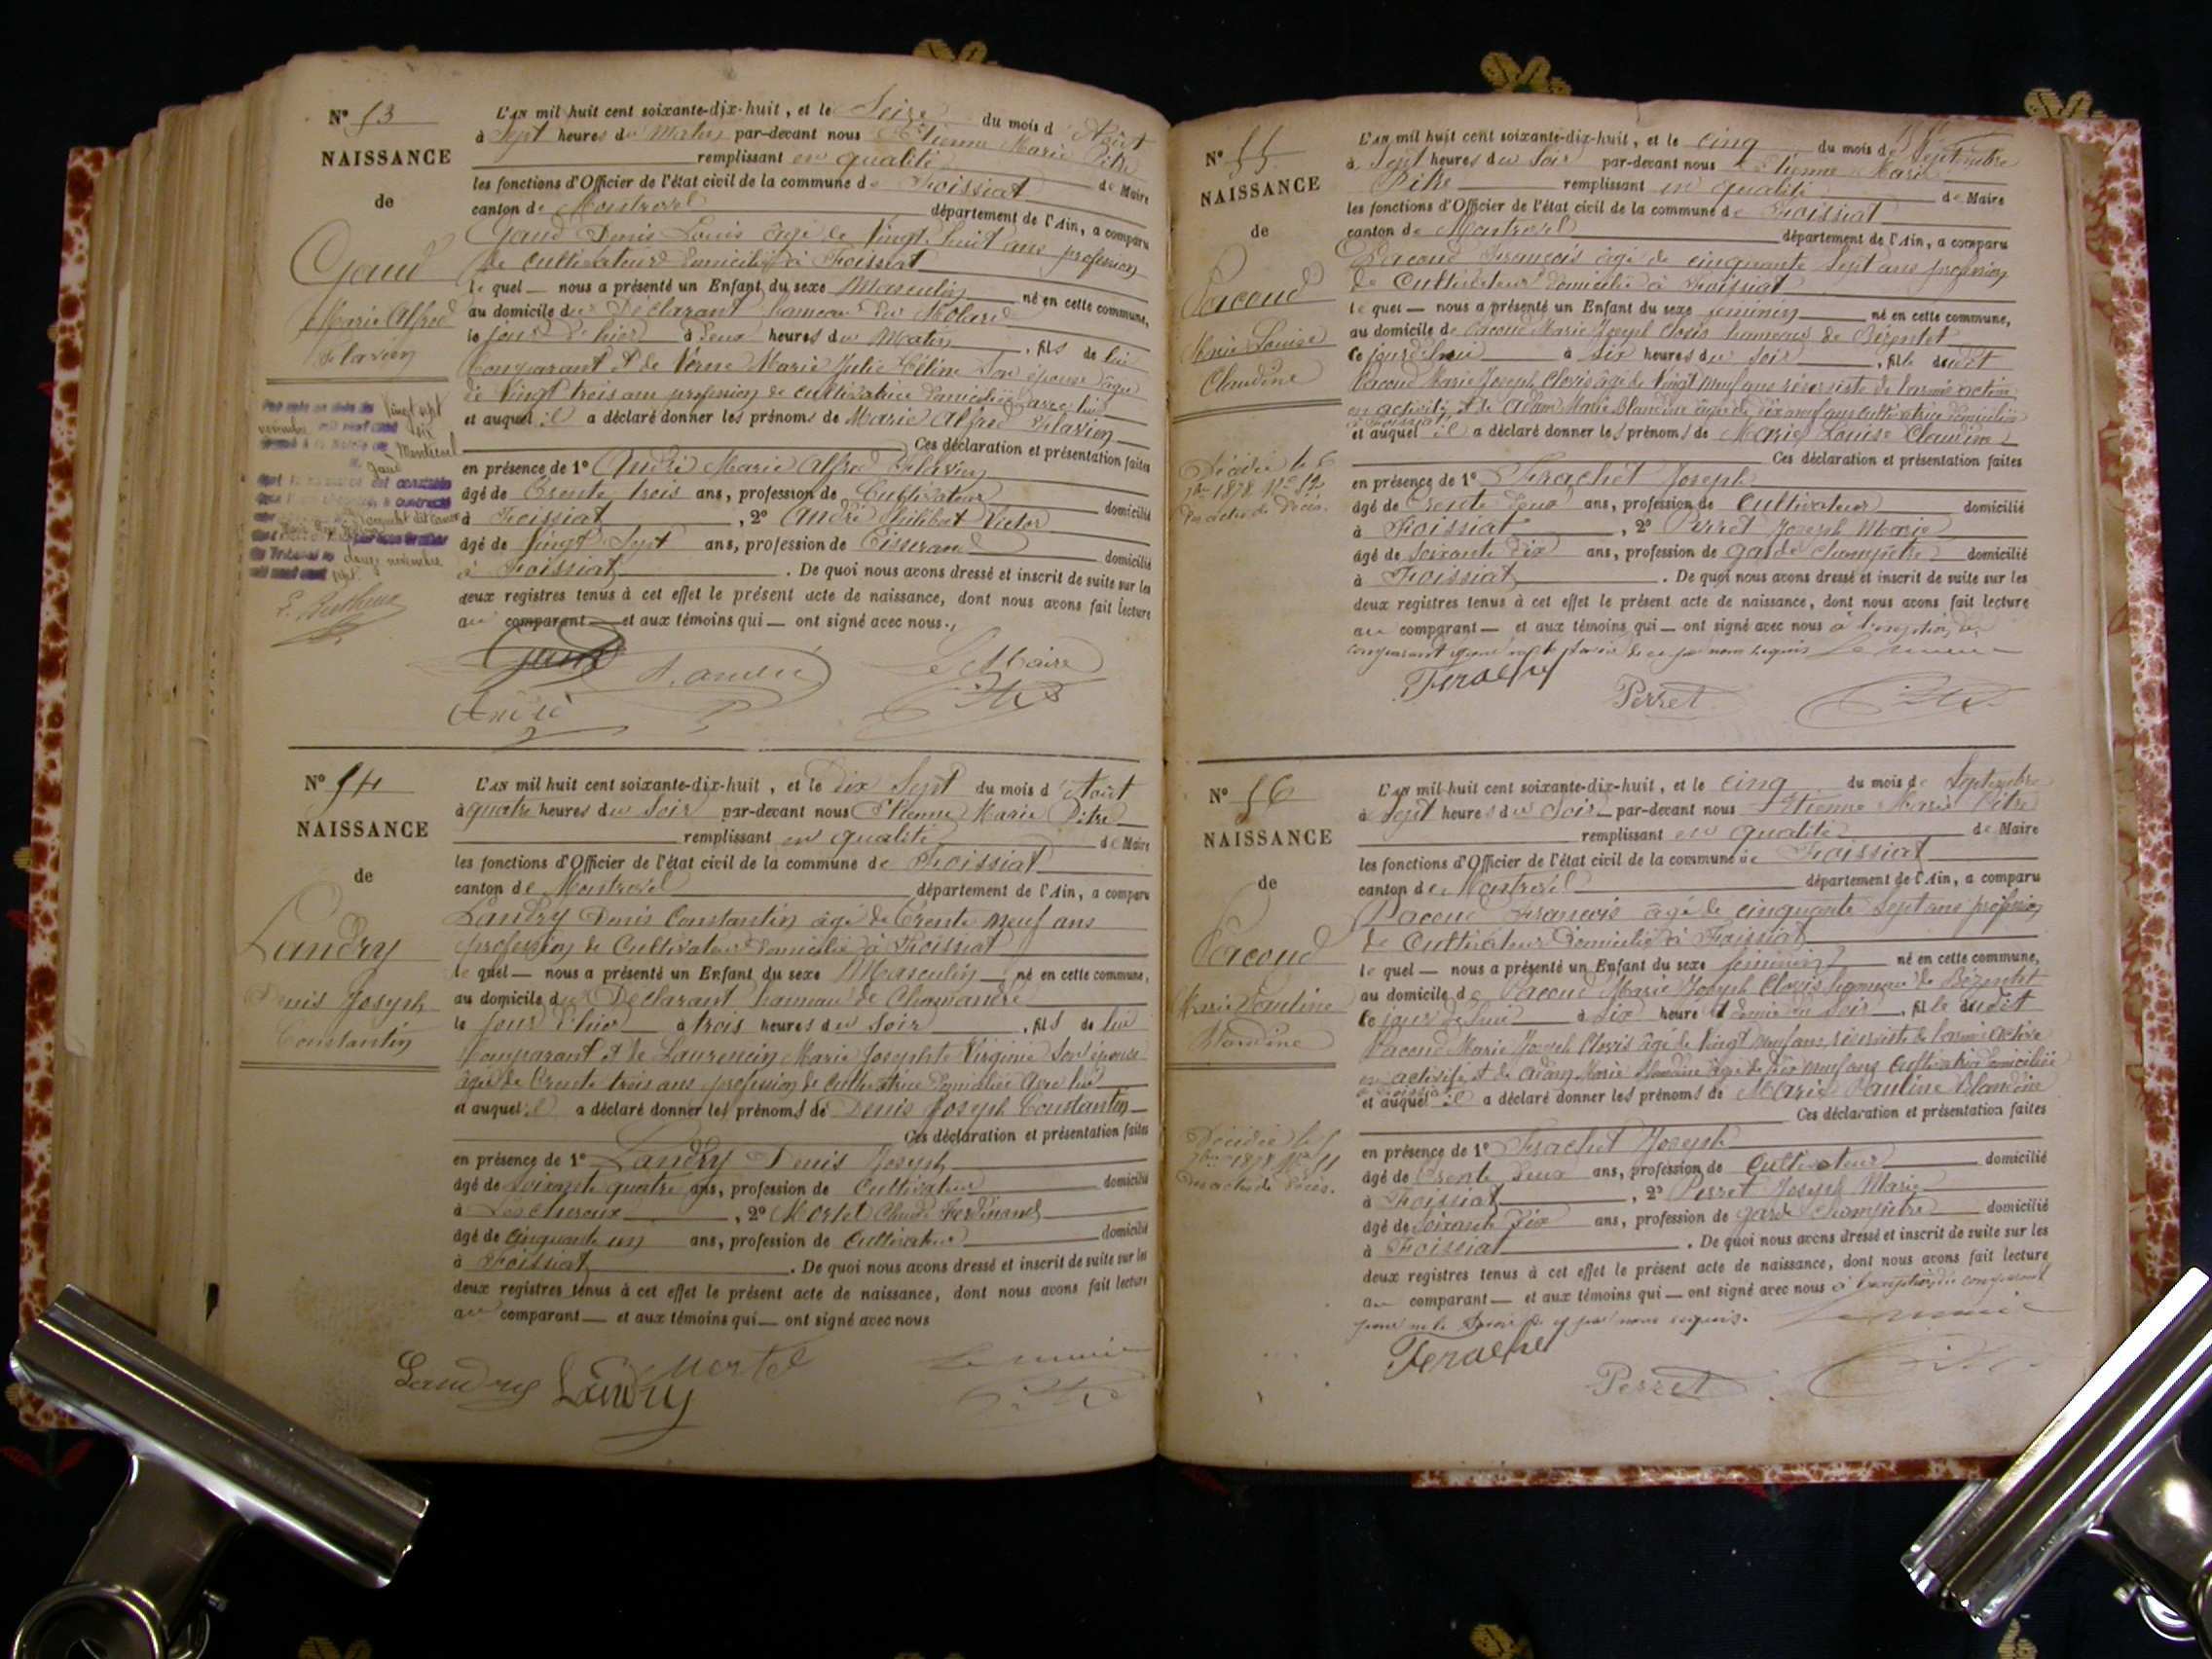 N° 53
NAISSANCE
de
Gaud
Marie Alfred
Flavien
L'AN mil huit cent soixante-dix-huit, et le Seize du mois d'Août
à Sept heures du Matin par-devant nous Etienne Marie Pitre
remplissant en qualité de Maire
les fonctions d'Officier de l'état civil de la commune de Foissiat
canton de Montrevel département de l'Ain, a comparu
Gaud Denis Louis âgé de Vingt huit ans profession
de Cultivateur domicilié à Foissiat
lequel nous a présenté un Enfant du sexe Masculin né en cette commune,
au domicile du Déclarant hameau du
le jour d'hier à deux heures du Matin, fils de lui
Comparant et de Verne Marie Julie Céline son épouse âgée
de Vingt trois ans profession de cultivatrice domiciliée avec lui
et auquel il a déclaré donner les prénoms de Marie Alfred Flavien
Ces déclaration et présentation faites
en présence de 1° André Marie Alfred Flavien
âgé de Trente trois ans, profession de Cultivateur domicilié
à Foissiat, 2° André Philibert Victor
âgé de Vingt Sept ans, profession de Tisserand domicilié
à Foissiat. De quoi nous avons dressé et inscrit de suite sur les
deux registres tenus à cet effet le présent acte de naissance, dont nous avons fait lecture
au comparant et aux témoins qui ont signé avec nous.
Gaud
André
Le Maire
André
Pitre
N° 54
NAISSANCE
de
Landry
Denis Joseph
Constantin
L'AN mil huit cent soixante-dix-huit, et le Dix Sept du mois d'Août
à quatre heures du Soir par-devant nous Etienne Marie Pitre
remplissant en qualité de Maire
les fonctions d'Officier de l'état civil de la commune de Foissiat
canton de Montrevel département de l'Ain, a comparu
Landry Denis Constantin âgé de Trente neuf ans
profession de Cultivateur domicilié à Foissiat
lequel nous a présenté un Enfant du sexe Masculin né en cette commune,
au domicile du Déclarant hameau de Chamandré
le jour d'hier à trois heures du Soir, fils de lui
Comparant et de Laurencin Marie Josephte Virginie son épouse
âgée de Trente trois ans profession de cultivatrice domiciliée avec lui
et auquel il a déclaré donner les prénoms de Denis Joseph Constantin
Ces déclaration et présentation faites
en présence de 1° Landry Denis Joseph
âgé de soixante quatre ans, profession de Cultivateur domicilié
à Lescheroux, 2° Mortel Claude Ferdinand
âgé de cinquante un ans, profession de Cultivateur domicilié
à Foissiat. De quoi nous avons dressé et inscrit de suite sur les
deux registres tenus à cet effet le présent acte de naissance, dont nous avons fait lecture
au comparant et aux témoins qui ont signé avec nous
Landry Landry Mortel
Le maire
Pitre
N° 55
NAISSANCE
de
Pacoud
Marie Louise
Claudine
Décédée le 6
7bre 1878 N° 52
des actes de Décès.
L'AN mil huit cent soixante-dix-huit, et le cinq du mois de Septembre
à Sept heures du Soir par-devant nous Etienne Marie
Pitre remplissant en qualité de Maire
les fonctions d'Officier de l'état civil de la commune de Foissiat
canton de Montrevel département de l'Ain, a comparu
Pacoud François âgé de cinquante Sept ans profession
de Cultivateur domicilié à Foissiat
lequel nous a présenté un Enfant du sexe féminin né en cette commune,
au domicile de Pacoud Marie Joseph Clovis hameau de Bézentet
ce jourd'hui à Six heures du Soir, fille dudit
Pacoud Marie Joseph Clovis âgé de Vingt neuf ans réserviste de l'armée active
en activité et de Adam Marie Blandine âgée de dix neuf ans cultivatrice domiciliée
à Foissiat
et auquel il a déclaré donner les prénoms de Marie Louise Claudine
Ces déclaration et présentation faites
en présence de 1° Ferachet Joseph
âgé de Trente deux ans, profession de Cultivateur domicilié
à Foissiat, 2° Perret Joseph Marie
âgé de soixante dix ans, profession de garde champêtre domicilié
à Foissiat. De quoi nous avons dressé et inscrit de suite sur les
deux registres tenus à cet effet le présent acte de naissance, dont nous avons fait lecture
au comparant et aux témoins qui ont signé avec nous à l'exception du
comparant pour ne le savoir de ce par nous requis Le maire
Perret
Pitre
N° 56
NAISSANCE
de
Pacoud
Marie Pauline
Blandine
Décédée le 5
7bre 1878 N° 51
des actes de Décès.
L'AN mil huit cent soixante-dix-huit, et le cinq du mois de Septembre
à Sept heures du Soir par-devant nous Etienne Marie Pitre
remplissant en qualité de Maire
les fonctions d'Officier de l'état civil de la commune de Foissiat
canton de Montrevel département de l'Ain, a comparu
Pacoud François âgé de cinquante Sept ans profession
de Cultivateur domicilié à Foissiat
lequel nous a présenté un Enfant du sexe féminin né en cette commune,
au domicile de Pacoud Marie Joseph Clovis hameau de Bézentet
ce jour d'hui à Six heure et demie du Soir, fille dudit
Pacoud Marie Joseph Clovis âgé de Vingt neuf ans, réserviste de l'armée active
en activité et de Adam Marie Blandine âgée de dix neuf ans cultivatrice domiciliée
à Foissiat
et auquel il a déclaré donner les prénoms de Marie Pauline Blandine
Ces déclaration et présentation faites
en présence de 1° Ferachet Joseph
âgé de Trente deux ans, profession de Cultivateur domicilié
à Foissiat, 2° Perret Joseph Marie
âgé de soixante dix ans, profession de garde champêtre domicilié
à Foissiat. De quoi nous avons dressé et inscrit de suite sur les
deux registres tenus à cet effet le présent acte de naissance, dont nous avons fait lecture
au comparant et aux témoins qui ont signé avec nous à l'exception du comparant
pour ne le savoir de ce par nous requis. Le maire
Perret
Pitre